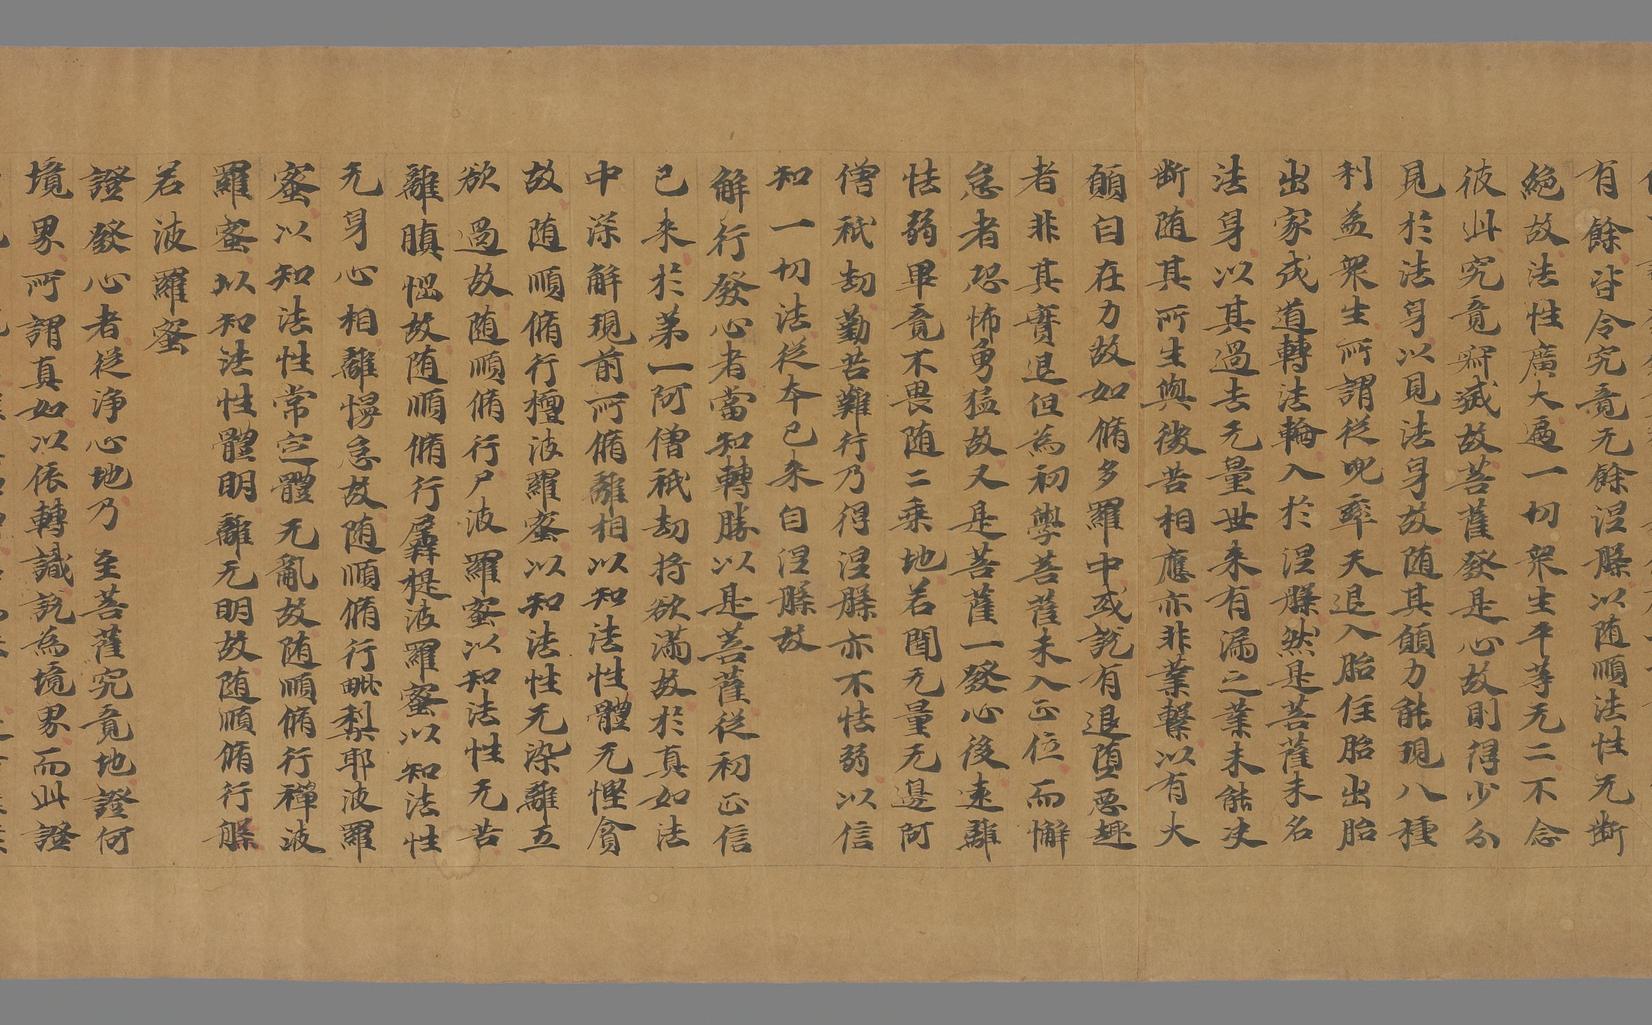 有餘皆令究竟无餘涅槃以随順法性无断
絶故法性廣大遍一切衆生平等无二不念
彼此究竟寂滅故菩薩發是心故則得少分
見於法身以見法身故随其願力能現八種
利益衆生所謂從兜率天退入胎住胎出胎
出家成道轉法輪入於涅槃然是菩薩未名
法身以其過去无量世来有漏之業未能决
断随其所生與微苦相應亦非業繫以有大
願自在力故如脩多羅中或說有退墮惡趣
者非其實退但為初學菩薩未入正位而懈
怠者恐怖勇猛故又是菩薩一發心後速離
怯弱畢竟不畏随二乗地若聞无量无邊阿
僧祇劫勤苦難行乃得涅槃亦不怯弱以信
知一切法從本已来自涅槃故
解行發心者當知轉勝以是菩薩從初正信
已来於第一阿僧祇劫将欲滿故於真如法
中深解現前所脩離相以知法性體无慳貪
故随順脩行檀波羅蜜以知法性无染離五
欲過故随順脩行尸波羅蜜以知法性无苦
離瞋惱故随順脩行羼提波羅蜜以知法性
无身心相離懈怠故随順脩行毗梨耶波羅
蜜以知法性常定體无亂故随順脩行禪波
羅蜜以知法性體明離无明故随順脩行般
若波羅蜜
證發心者從淨心地乃至菩薩究竟地證何
境界所謂真如以依轉識說為境界而此證